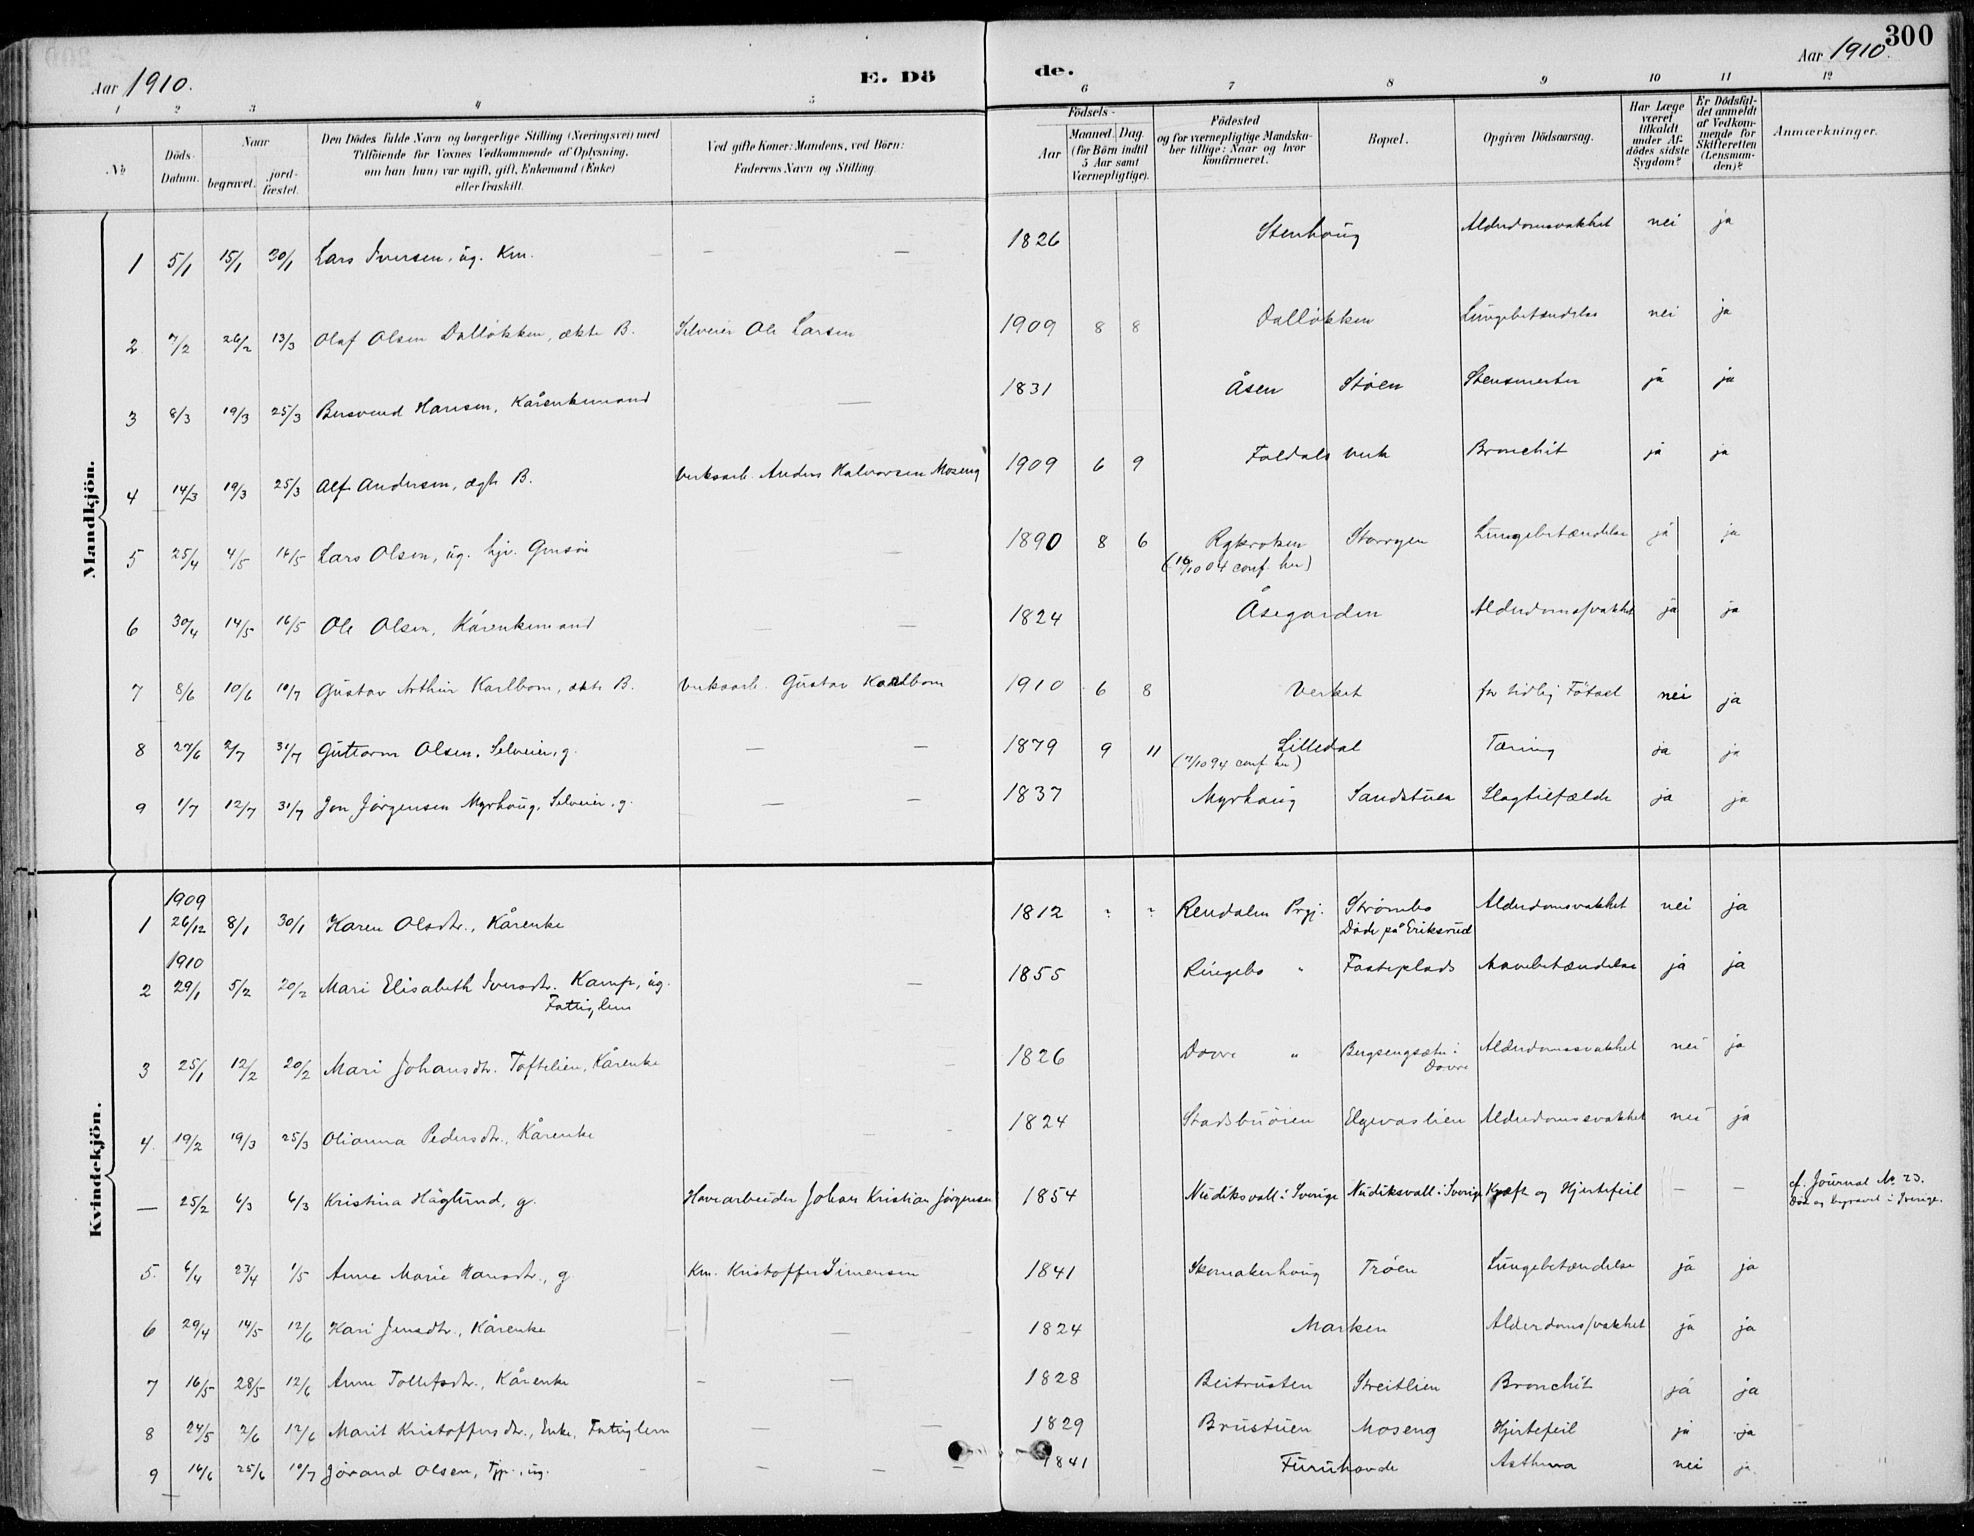 300
Aar 1910.
E. Dö
de.
Aar 1910.
1 2 3 4 5 6 7 8 9 10 11 12
No
Döds-Datum.
Naar
begravet.
jord-fæstet.
Den Dödes fulde Navn og borgerlige Stilling (Næringsvei) med
Tilföiende for Voxnes Vedkommende af Oplysning,
om han (hun) var ugift, gift, Enkemand (Enke)
eller fraskilt.
Ved gifte Koner: Mandens, ved Börn:
Faderens Navn og Stilling
Födsels-
Aar
Maaned. Dag.
(for Börn indtil
5 Aar samt
Værnepligtige).
Födested
og for værnepligtige Mandska-
ber tillige: Naar og hvor
konfirmeret.
Bopæl.
Opgiven Dödsaarsag.
Har Læge
været
tilkaldt
under Af-
dödes sidste
Sygdom?
Er Dödsfal-
det anmeldt
af Vedkom-
mende for
Skifteretten
(Lensman-
den)?
Anmærkninger.
Mandkjön.
1 5/1 15/1 30/1 Lars Iversen, ug. Km. — — 1826 Stenhoug Alderdomsvakhet nei ja
2 7/2 26/2 13/3 Olaf Olsen Dalløkken, ækte B. Selveier Ole Larsen 1909 8 8 Dalløkken Lungebetændelse nei ja
3 8/3 19/3 25/3 Bersvend Hansen, Kårenkemand — 1831 Åsen Støen Stensmerter ja ja
4 14/3 19/3 25/3 Alf Andersen, ægte B. Verksarb. Anders Halvorsen Moseng 1909 6 9 Foldals verk Bronchit ja ja
5 25/4 4/5 16/5 Lars Olsen, ug. — — 1890 8 6 Røkroken Storrøen Lungebetændelse ja ja
(16/10 04 conf. her)
6 30/4 14/5 16/5 Ole Olsen, Kårenkemand — — 1824 Åsegarden Alderdomssvakhet ja ja
7 8/6 10/6 10/7 Gustav Arthur Karlbom, ækte B. Verksarb. Gustav Karlbom 1910 6 8 Verket for tidlig Fötsel nei ja
8 27/6 2/7 31/7 Guttorm Olsen, Selveier, g. — — 1879 9 11 Lilledal Tæring ja ja
(7/10 94 conf. her)
9 1/7 12/7 31/7 Jon Jørgensen Myrhoug, Selveier, g. — — 1837 Myrhoug Sandstuen Slagtilfælde ja ja
Kvindekjön.
1909
1 26/12 8/1 30/1 Karen Olsdtr., Kårenke 1812 ? ? Rendalen Prgj. Strømbo Alderdomsvakhet nei ja
Döde på Eriksrud
1910
2 29/1 5/2 20/2 Mari Elisabeth Iversdtr. Kamp, ug. — 1855 Ringebo " Fosteplads Mavebetændelse ja ja
Fattiglem
3 25/1 12/2 20/2 Mari Johansdtr. Toftelien, Kårenke 1826 Dovre " Bergsengsæter i Alderdomssvakhet nei ja
Dovre
4. 19/2 19/3 25/3 Olianna Pedersdtr., Kårenke — 1824 Stadsbuøien Elgevaslien Alderdomssvakhet nei ja
— 25/2 6/3 6/3 Kristina Häglund, g. Havearbeider Johan Kristian Jørgensen 1854 Nudiksvall i Sverige Nudiksvall i Sverige Kræft og Hjertefeil — — cf. Journal No 23.
Död og begravet i Sverige.
5. 6/4 23/4 1/5 Anne Marie Hansdtr., g. Km. Kristoffer Simensen 1841 Skomakerhoug Trøen Lungebetændelse ja ja
6 29/4 14/5 12/6 Kari Jensdtr., Kårenke — — 1824 Marken Alderdomssvakhet ja ja
7 16/5 28/5 12/6 Anne Tollefsdtr., Kårenke — — 1828 Beitrusten Streitlien Bronchit ja ja
8 24/5 2/6 12/6 Marit Kristoffersdtr., Enke, Fattiglem — — 1829 Brustuen Moseng Hjertefeil ja ja
9 16/6 25/6 10/7 Jorand Olsen, Tjp., ug. — — 1841 Furuhovde Asthma nei ja